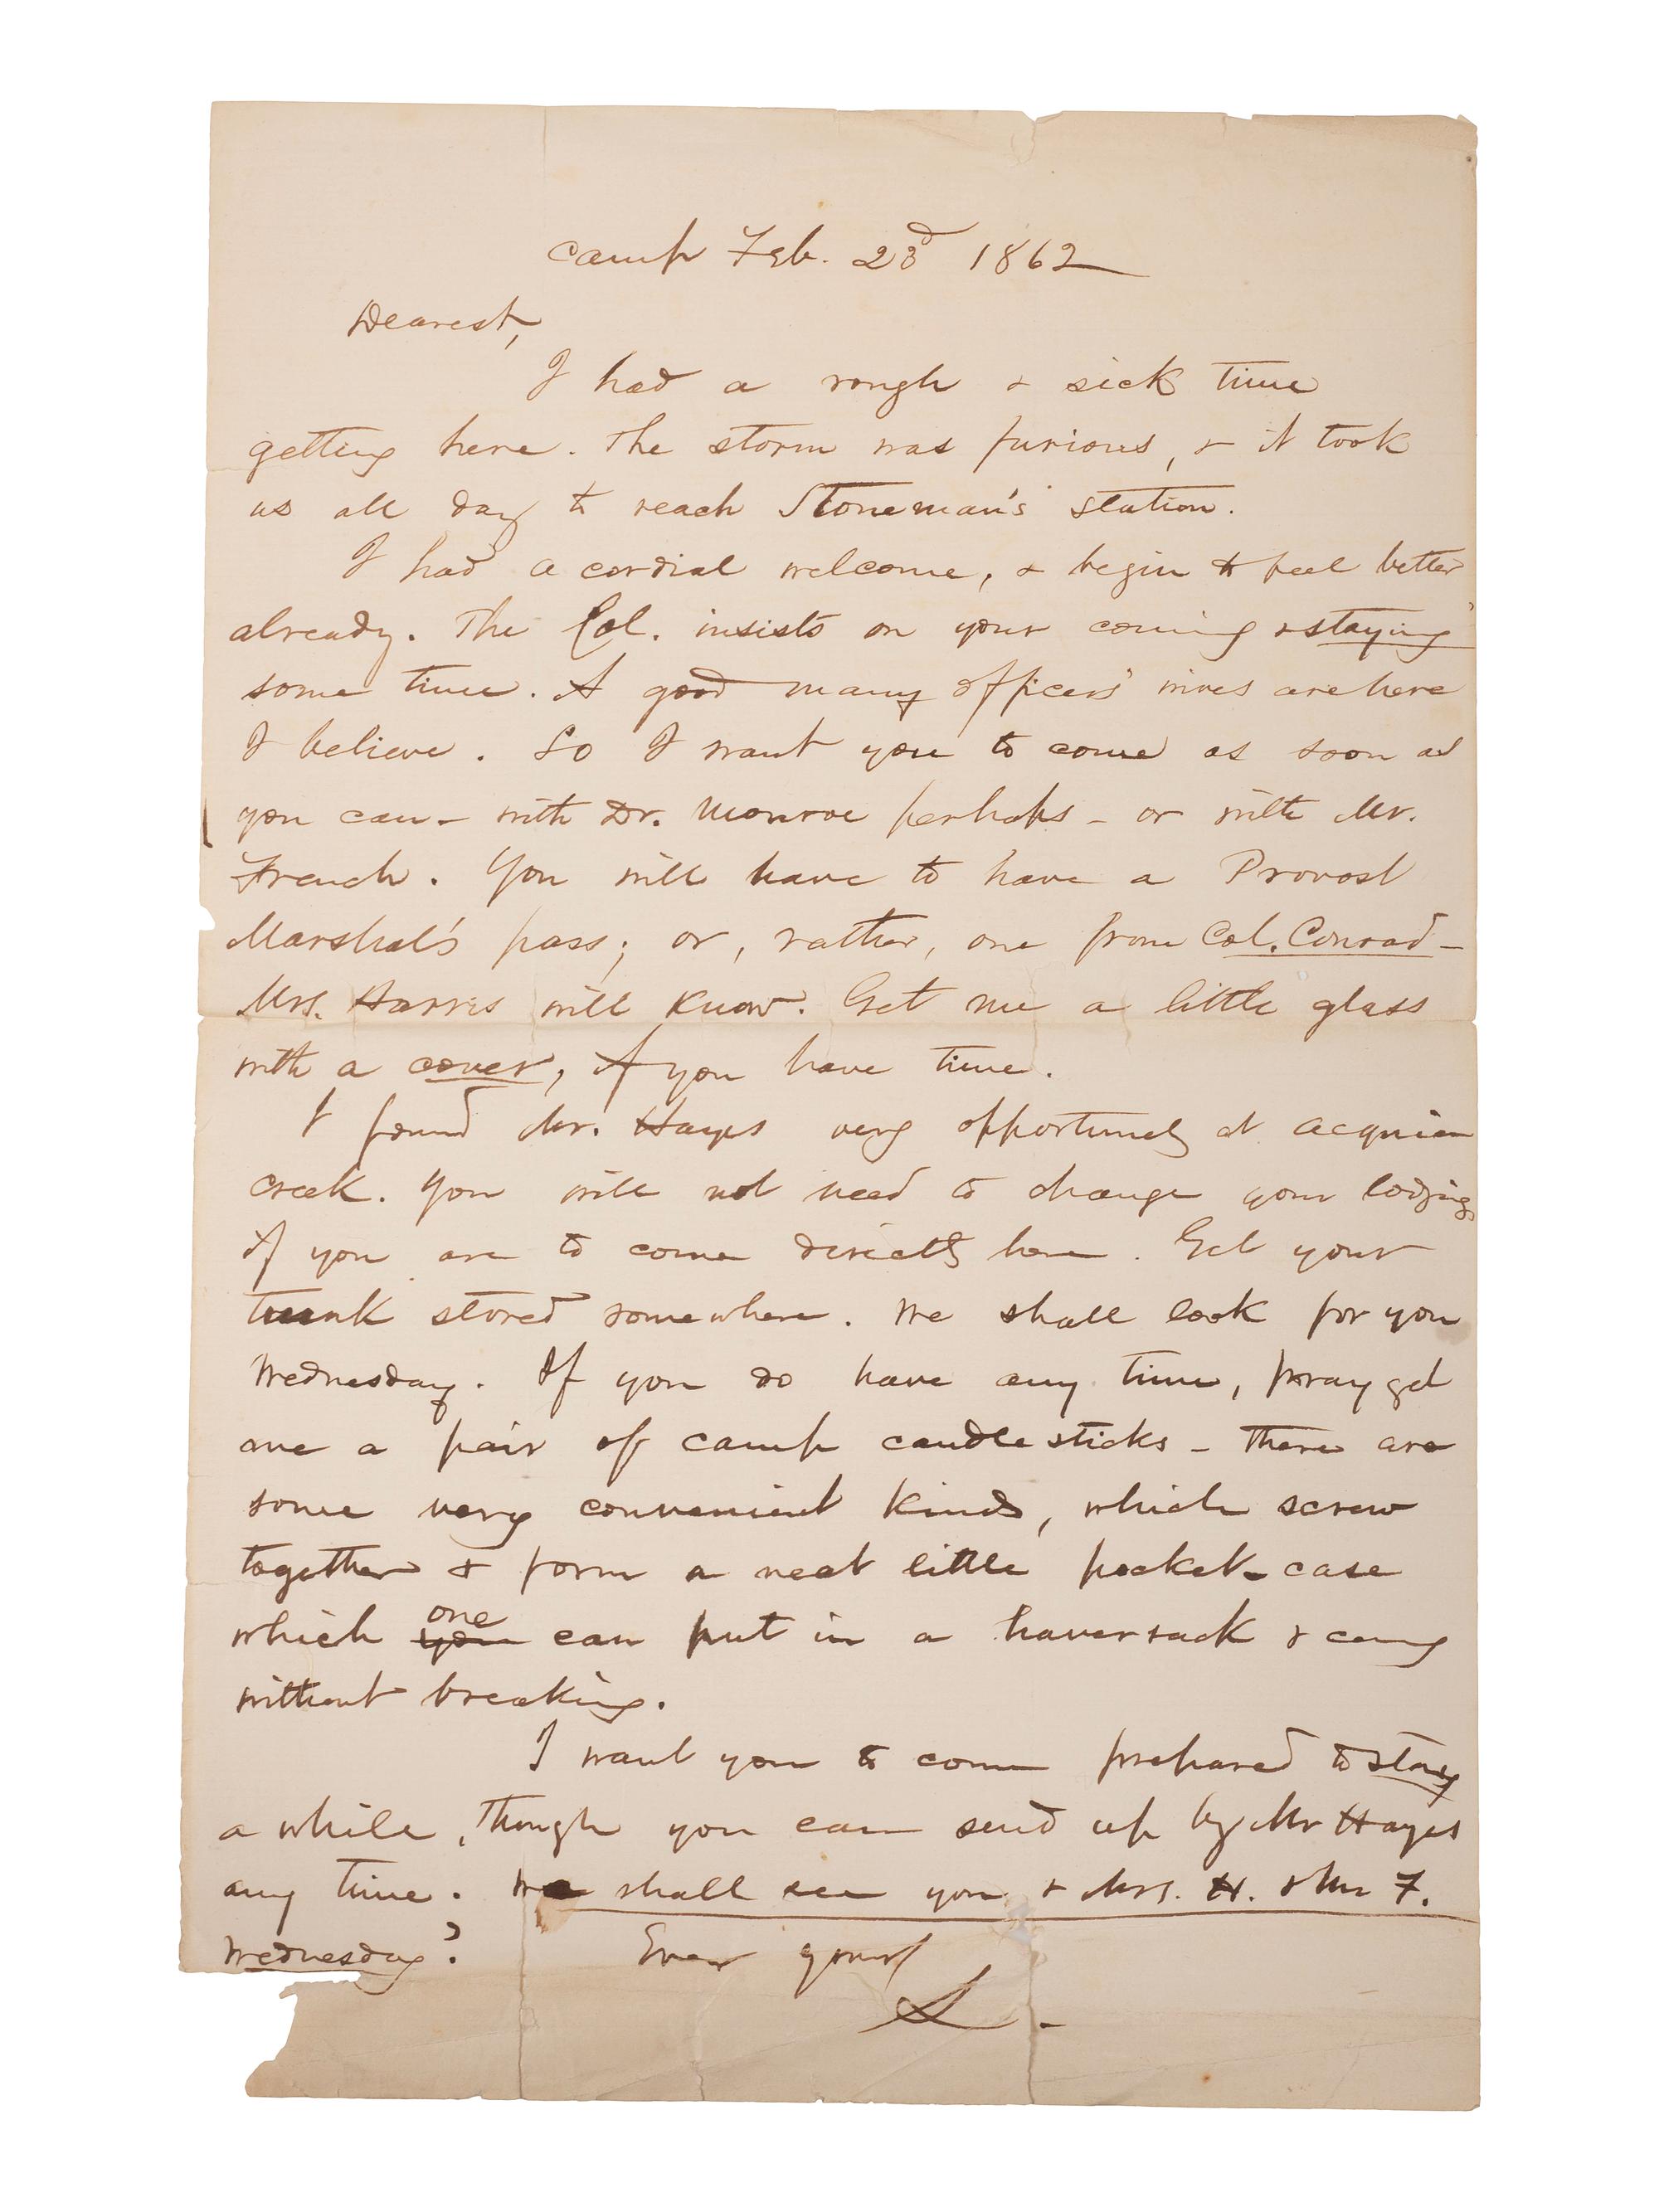 Camp Feb. 23d 1862
Dearest,
I had a rough & sick time
getting here. The storm was furious, & it took
us all day to reach Stoneman's station.
I had a cordial welcome, & begin to feel better
already. The Col. insists on your coming & staying
some time. A good many officers' wives are here
I believe. So I want you to come as soon as
you can - with Dr. Monroe perhaps - or with Mr.
French. You will have to have a Provost
Marshal's pass; or, rather, one from Col. Conrad -
Mrs. Harris will know. Get me a little glass
with a cover, if you have time.
I found Mr. Hayes very opportunely at Acquia
creek. You will not need to change your lodging
if you are to come directly here. Get your
trunk stored somewhere. We shall look for you
Wednesday. If you do have any time, pray get
me a pair of camp candlesticks - there are
some very convenient kinds, which screw
together & form a neat little pocket-case
which you one can put in a haversack & carry
without breaking.
I want you to come prepared to stay
a while, though you can send up by Mr Hayes
any time. We shall see you & Mrs. H. & Mr F.
Wednesday?
Ever yours
L.